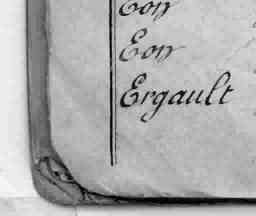 Eon
Eon
Ergault